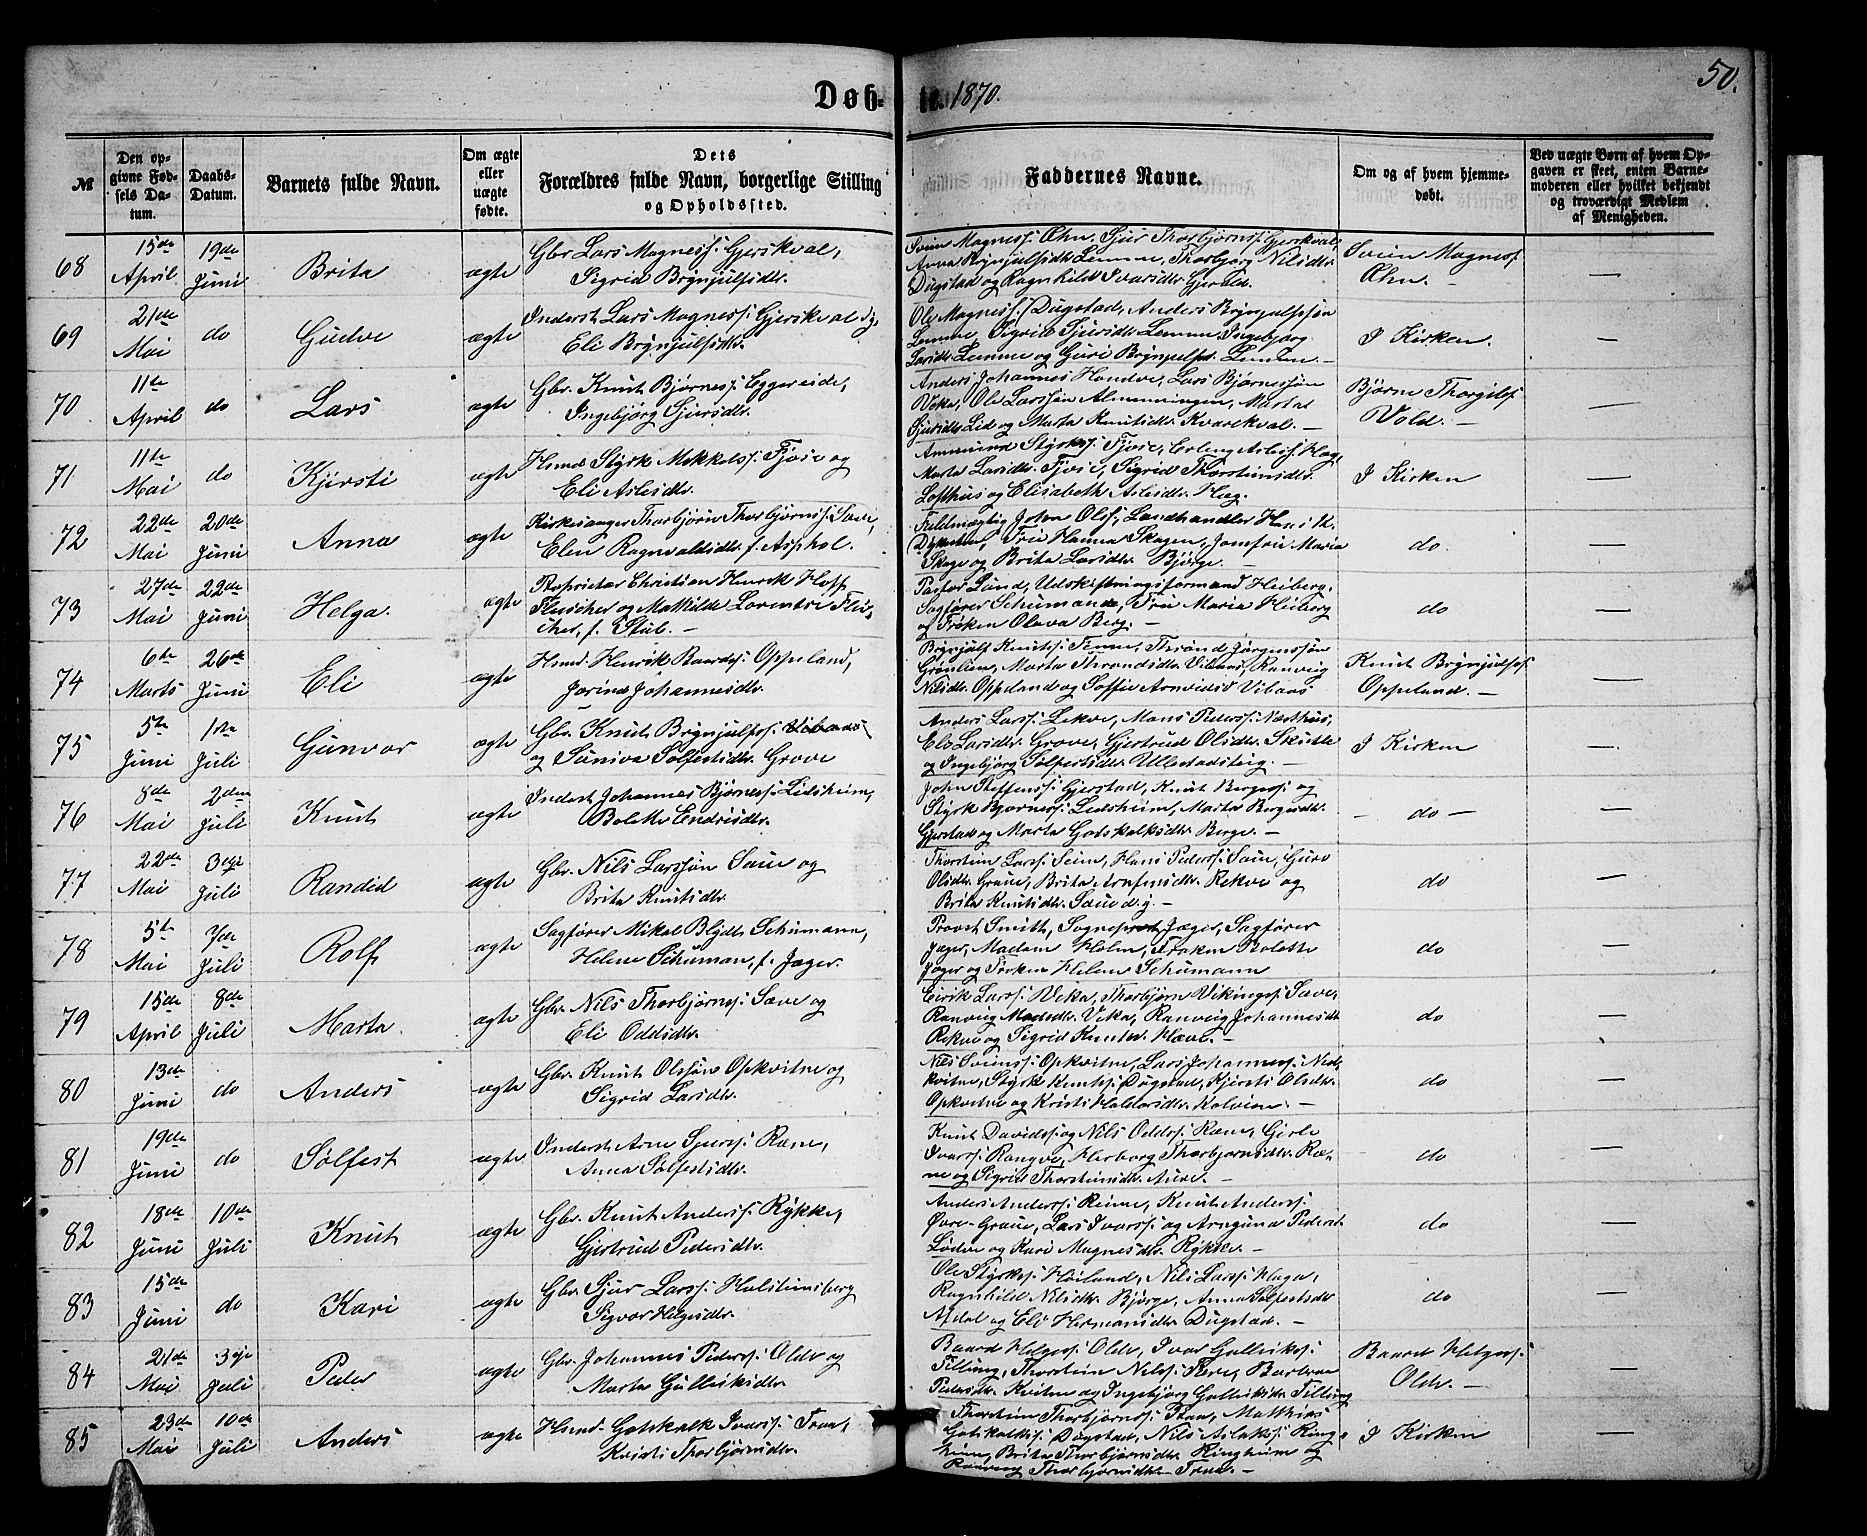 Døb-
te. 1870.
50.
№
Den op-
givne Fød-
sels Da-
tum.
Daabs-
Datum.
Barnets fulde Navn.
Om ægte
eller
uægte
fødte.
Dets
Forældres fulde Navn, borgerlige Stilling
og Opholdssted.
Faddernes Navne.
Om og af hvem hjemme-
døbt.
Ved uægte Børn af hvem Op-
gaven er skeet, enten Barne-
moderen eller hvilket bekjendt
og troværdigt Medlem
af Menigheden.
68
15de April
19de Juni
Brita
ægte
Gbr Lars Magness: Gjerskval,
Sigrid Brynjulfsdtr.
Svein Magness: Øhn, Sjur Thorbjørnss: Gjerskval,
Anna Brynjulfsdtr Lemme, Thorbjørg Nilsdtr
Dugstad og Ragnhild Ivarsdtr
Svein Magness
Øhn.
—
69
21de Mai
do
Gudve
ægte
Inderst Lars Magness: Gjerskval
Eli Brynjulfsdtr.
Ole Magness: Dugstad, Anders Brynjulfssøn
Lemme, Sigrid Sjursdtr Lemme, Ingebjørg
Larsdtr Lemme og Guri Brynjulfsd. Lemme. —
I Kirken.
—
70
11te April
do
Lars
ægte
Gbr. Knut Bjørness: Eggereide,
Ingebjørg Sjursdtr.
Anders Johannes Handve, Lars Bjørnessøn
Veka, Ole Larssøn Almenningen, Marta
Sjursdtr Lid og Marta Knutsdtr Kvarekval. —
Bjørne Thorgilss
Vold. —
—
71
11te Mai
do
Kjersti
ægte
Husmd Styrk Mikkelss: Fjøse og
Eli Aslesdtr.
Ammund Styrkss: Fjøse, Erling Asless: Hæg,
Marta Larsdtr. Fjøse, Sigrid Thorsteinsdtr.
Lofthus og Elisabeth Aslesdtr. Hæg.
I Kirken
—
72
22de Mai
20de Juni
Anna
ægte
Kirkesanger Thorbjørn Thorbjørnss: Saue,
Elen Ragnvaldsdtr. f. Asphol.
Fuldmægtig John Olss:, Landhandler Hans K.
Frü Hanna Skagen, Jomfru Maria
Skage og Brita Larsdtr Bjørge. —
do.
—
73
27de Mai
22de Juni
Helga.
ægte
Proprietær Christian Henrik Hoff
Fleischer og Mathilde Lorentse Flei-
scher, f. Stub. —
Pastor Lund, Udskiftningsformand Heiberg,
Sagfører Schumann, Fru Maria Heiberg
og Frøken Olava Berg. —
do
—
74
6te Marts
26de Juni
Eli
ægte
Husmd. Henrik Baards: Oppeland,
Jorind Johannesdtr.
Brynjulf Knutss: Tenne, Thrond Jørgenssøn
Grønlien, Marta Throndsdtr Vibaas, Ranveig
Nilsdtr. Oppeland og Soffie Arnvidsd Vibaas
Knut Brynjulfss:
Oppeland. —
—
75
5te Juni
1ste Juli
Gunvor
ægte
Gbr. Knut Brynjulfss:
og Suniva Sølfestsdtr. Grove
Anders Larss: Lekve, Mons Pederss: Nedthus,
Els Larsdtr. Grove, Gjertrud Olsdtr. Skutle
og Ingebjørg Sølfestsdtr. Ullestadsteig. —
I Kirken
—
76
8de Mai
2den Juli
Knut
ægte
Inderst Johannes Bjørness: Lidsheim,
Bolette Endresdtr.
John Steffenss: Gjerstad, Knut Bergess: og
Styrk Bjørness: Lidsheim, Marta Bergesdtr.
Gjerstad og Marta Gotskalksdtr Berge. —
— do —
—
77
22de Mai
3die Juli
Randid
ægte
Gbr. Nils Larssøn Saue og
Brita Knutsdtr.
Thorstein Larss: Seim, Hans Pederss: Saue, Guro
Olsdtr. Graue, Brita Arnfinsdtr. Rekve og
Brita Knutsdtr. Saue d.y. —
do
—
78
5te Mai
7de Juli
Rolf
ægte
Sagfører Mikal Blydt Schumann,
Helene Schuman, f. Jæger.
Provst Smith, Sogneprest Jæger, Sagfører
Jæger, Madam Holm, Frøken Bolette
Jæger og Frøken Helene Schumann
do
—
79
15de April
8de Juli
Marta
ægte
Gbr. Nils Thorbjørnss: Sæve og
Eli Oddsdtr.
Eirik Larss: Veka, Thorbjørn Vikingss: Sæve,
Ranveig Madsdtr. Veka, Ranveig Johannesdt
Rekve og Sigrid Knutsd.
do
—
80
13de Juni
do
Anders
ægte
Gbr. Knut Olssøn Opkvitne og
Sigrid Larsdtr.
Nils Sveinss: Opkvitne, Lars Johanness: Ned-
kvitne, Styrk Knutss: Dugstad, Kjersti Olsdtr.
Opkvitne og Kristi Haldorsdtr. Kolvien. —
do
—
81
19de Juni
do
Sølfest
ægte
Inderst Arne Sjurss: Ræne,
Anna Sølfestsdtr.
Knut Davidss: og Nils Oddss: Ræne, Gjerle
Ivarss: Rongve, Herborg Thorbjørnsdtr. Ræ-
ne og Sigrid Thorsteinsdtr. —
do
—
82
18de Juni
10de Juli
Knut
ægte
Gbr. Knut Anderss: Rykke,
Gjertrud Pedersdtr.
Anders Anderss: Rinne, Knut Anderss:
Øvre-Graue, Lars Ivarss: og Arnguna Pedersdt
Lødve og Kari Magnesdtr. Rykke. —
do
—
83
15de Juni
do
Kari
ægte
Gbr. Sjur Larss: Halsteinsberg
Sigvor Helgesdtr.
Ole Styrkss: Høiland, Nils Larss: Haga,
Ragnhild Nilsdtr. Bjørge, Anna Sølfestsdtr
Afdal og Eli Hermansdtr. Dugstad. —
do
—
84
21de Mai
3die Juli
Peder
ægte
Gbr. Johannes Pederss: Olde og
Marta Gulleiksdtr.
Baard Helgess: Olde, Ivar Gulleikss:
Tillung, Thorstein Nilss: Fere, Barbra
Pedersdtr. Kvitne og Ingebjørg Gulleiksdtr. Tillung
Baard Helgess:
Olde. —
—
85
23de Mai
10de Juli
Anders
ægte
Husmd. Gotskalk Ivarss: Traa,
Kristi Thorbjørnsdtr.
Thorstein Thorbjørnss: Traa, Matthias
Gotskalkss: Dugstad, Nils Aslakss: Ring-
heim, Brita Thorbjørnsdtr. Ringheim og
Ranveig Thorbjørnsdtr Traa. —
I Kirken
—